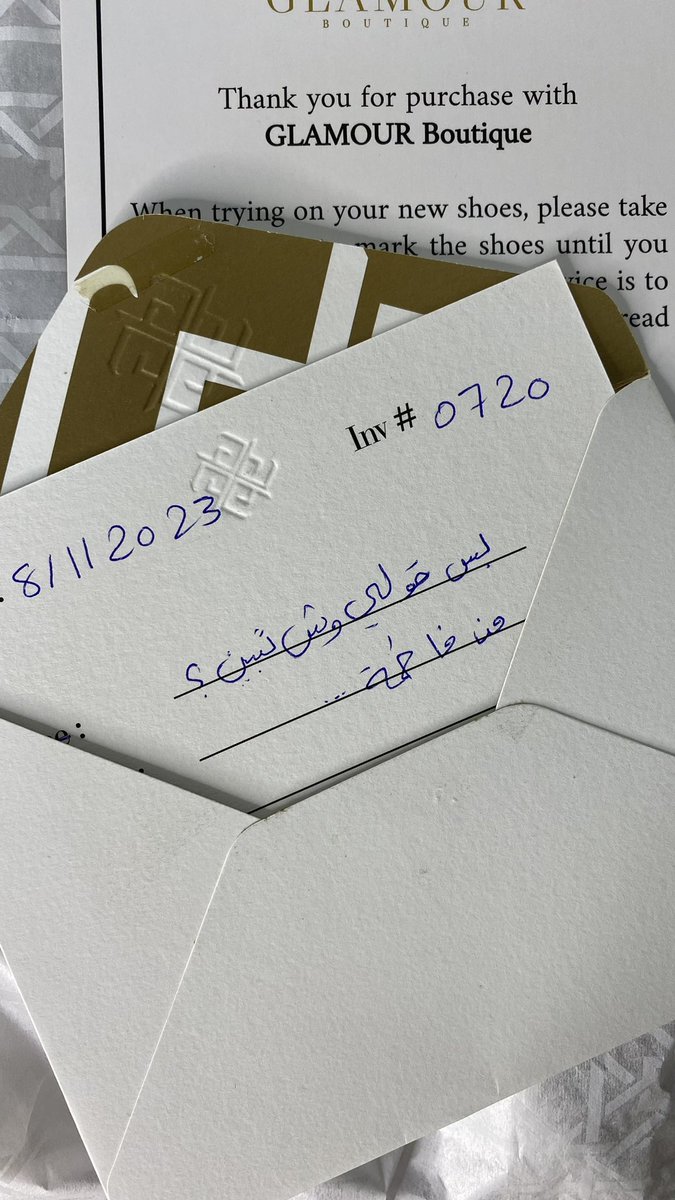 GLAMOUR
BOUTIQUE
Thank you for purchase with
GLAMOUR Boutique
When trying on your new shoes, please take
mark the shoes until you
is to
Inv # 0720
8/11 2023
بس قولي وش تبين ؟
من فاطمة ...